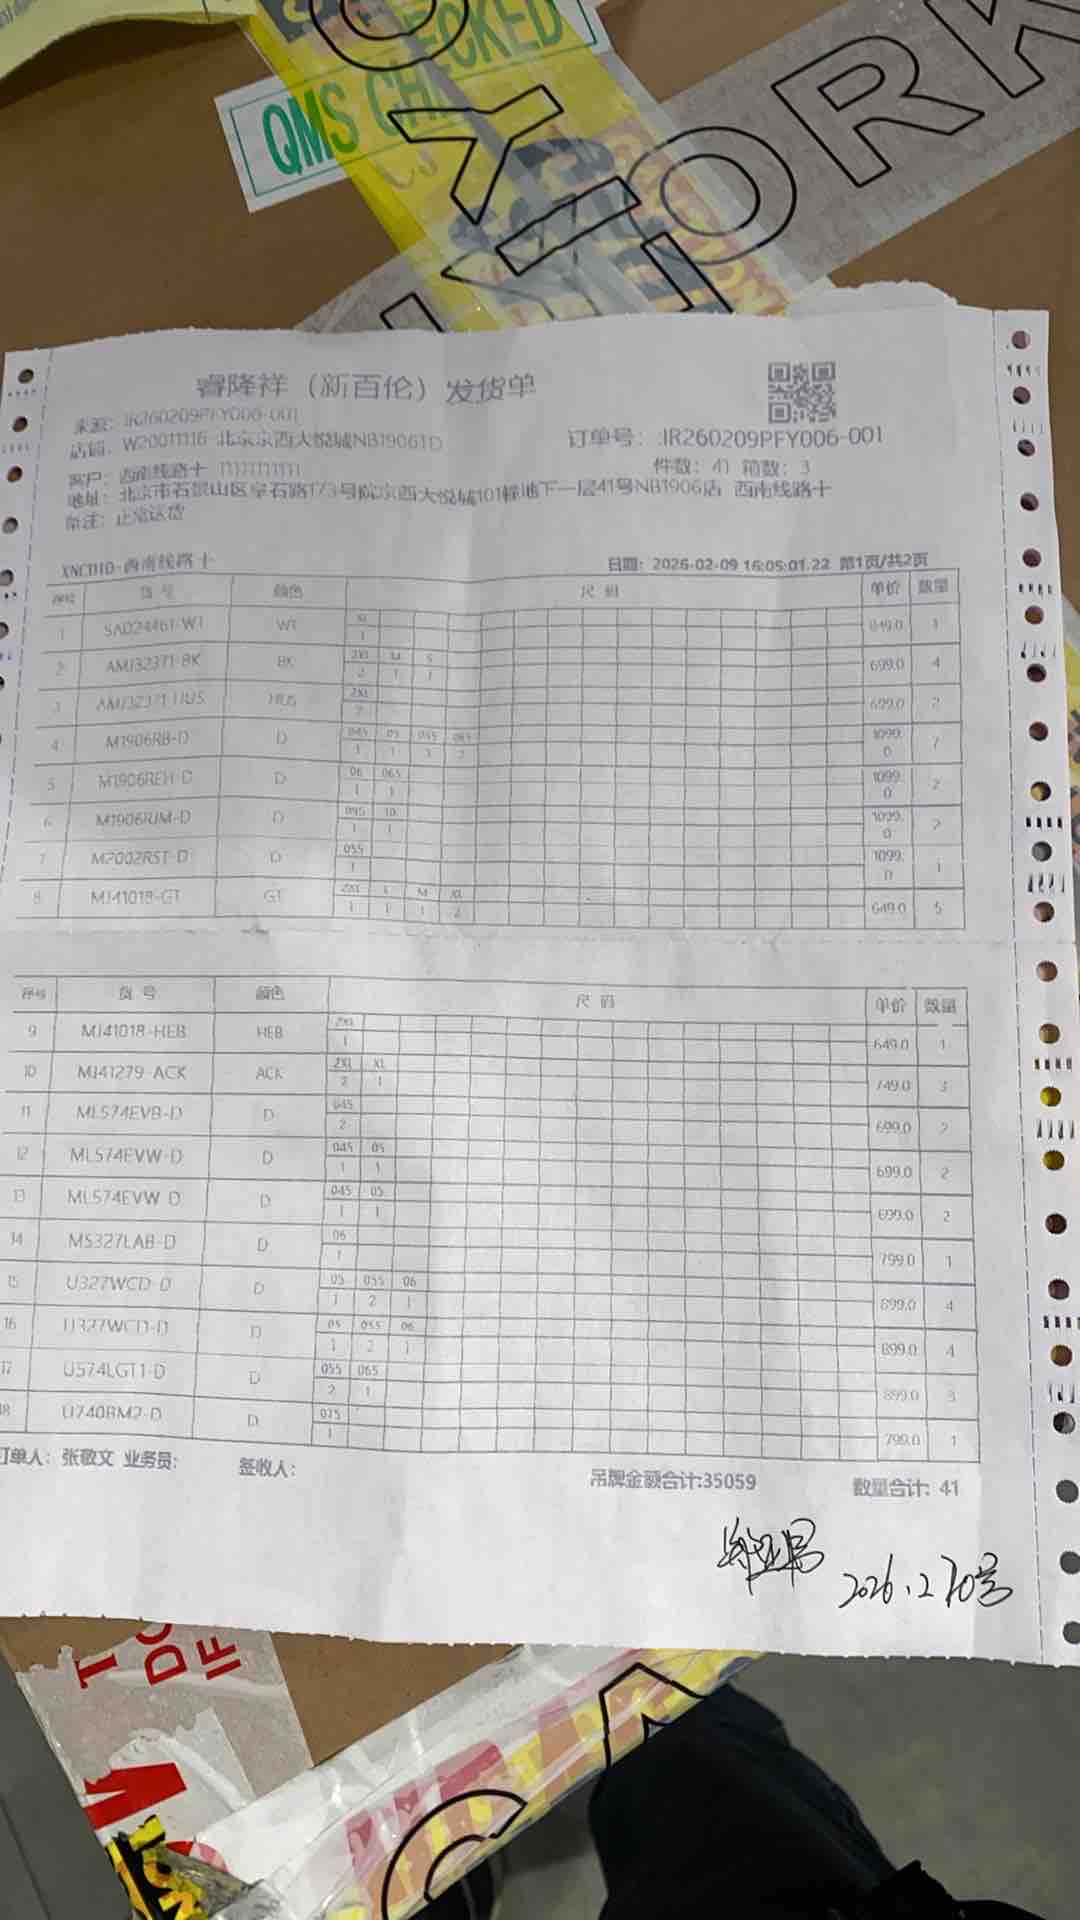 QMS CHECKED
睿隆祥（新百伦）发货单
来源: IR260209PFY006-001
店铺: W20011116-北京京西大悦城NB19061D 订单号: IR260209PFY006-001
客户: 西南线路十 件数: 41 箱数: 3
地址: 北京市石景山区阜石路173号院京西大悦城101幢地下一层41号NB1906店 西南线路十
备注: 正常送货
XNCD10-西南线路十 日期: 2026-02-09 16:05:01.22 第1页/共2页
序号 货号 颜色 尺码 单价 数量
1 WT 1
2 AMJ32371-BK BK 2XL M S 699.0 4
2 1 1
3 2XL 699.0 2
2
4 M1906RB-D D 045 05 055 065 1099.0 7
1 1 3 2
5 M1906REH-D D 06 065 1099.0 2
1 1
6 D 095 10 1099.0 2
1 1
7 M2002RST-D D 055 1099.0 1
1
8 MJ41018-GT GT 2XL L M XL 649.0 5
1 1 1 2
序号 货号 颜色 尺码 单价 数量
9 MJ41018-HEB HEB 2XL 649.0 1
1
10 MJ41279-ACK ACK 2XL XL 749.0 3
2 1
11 ML574EVB-D D 045 699.0 2
2
12 ML574EVW-D D 045 05 699.0 2
1 1
13 ML574EVW-D D 045 05 699.0 2
1 1
14 MS327LAB-D D 06 799.0 1
1
15 U327WCD-D D 05 055 06 899.0 4
1 2 1
16 U327WCD-D D 05 055 06 899.0 4
1 2 1
17 U574LGT1-D D 055 065 899.0 3
2 1
18 U740BM2-D D 075 799.0 1
1
订单人: 张敬文 业务员: 签收人: 吊牌金额合计:35059 数量合计: 41
2026.2月10号